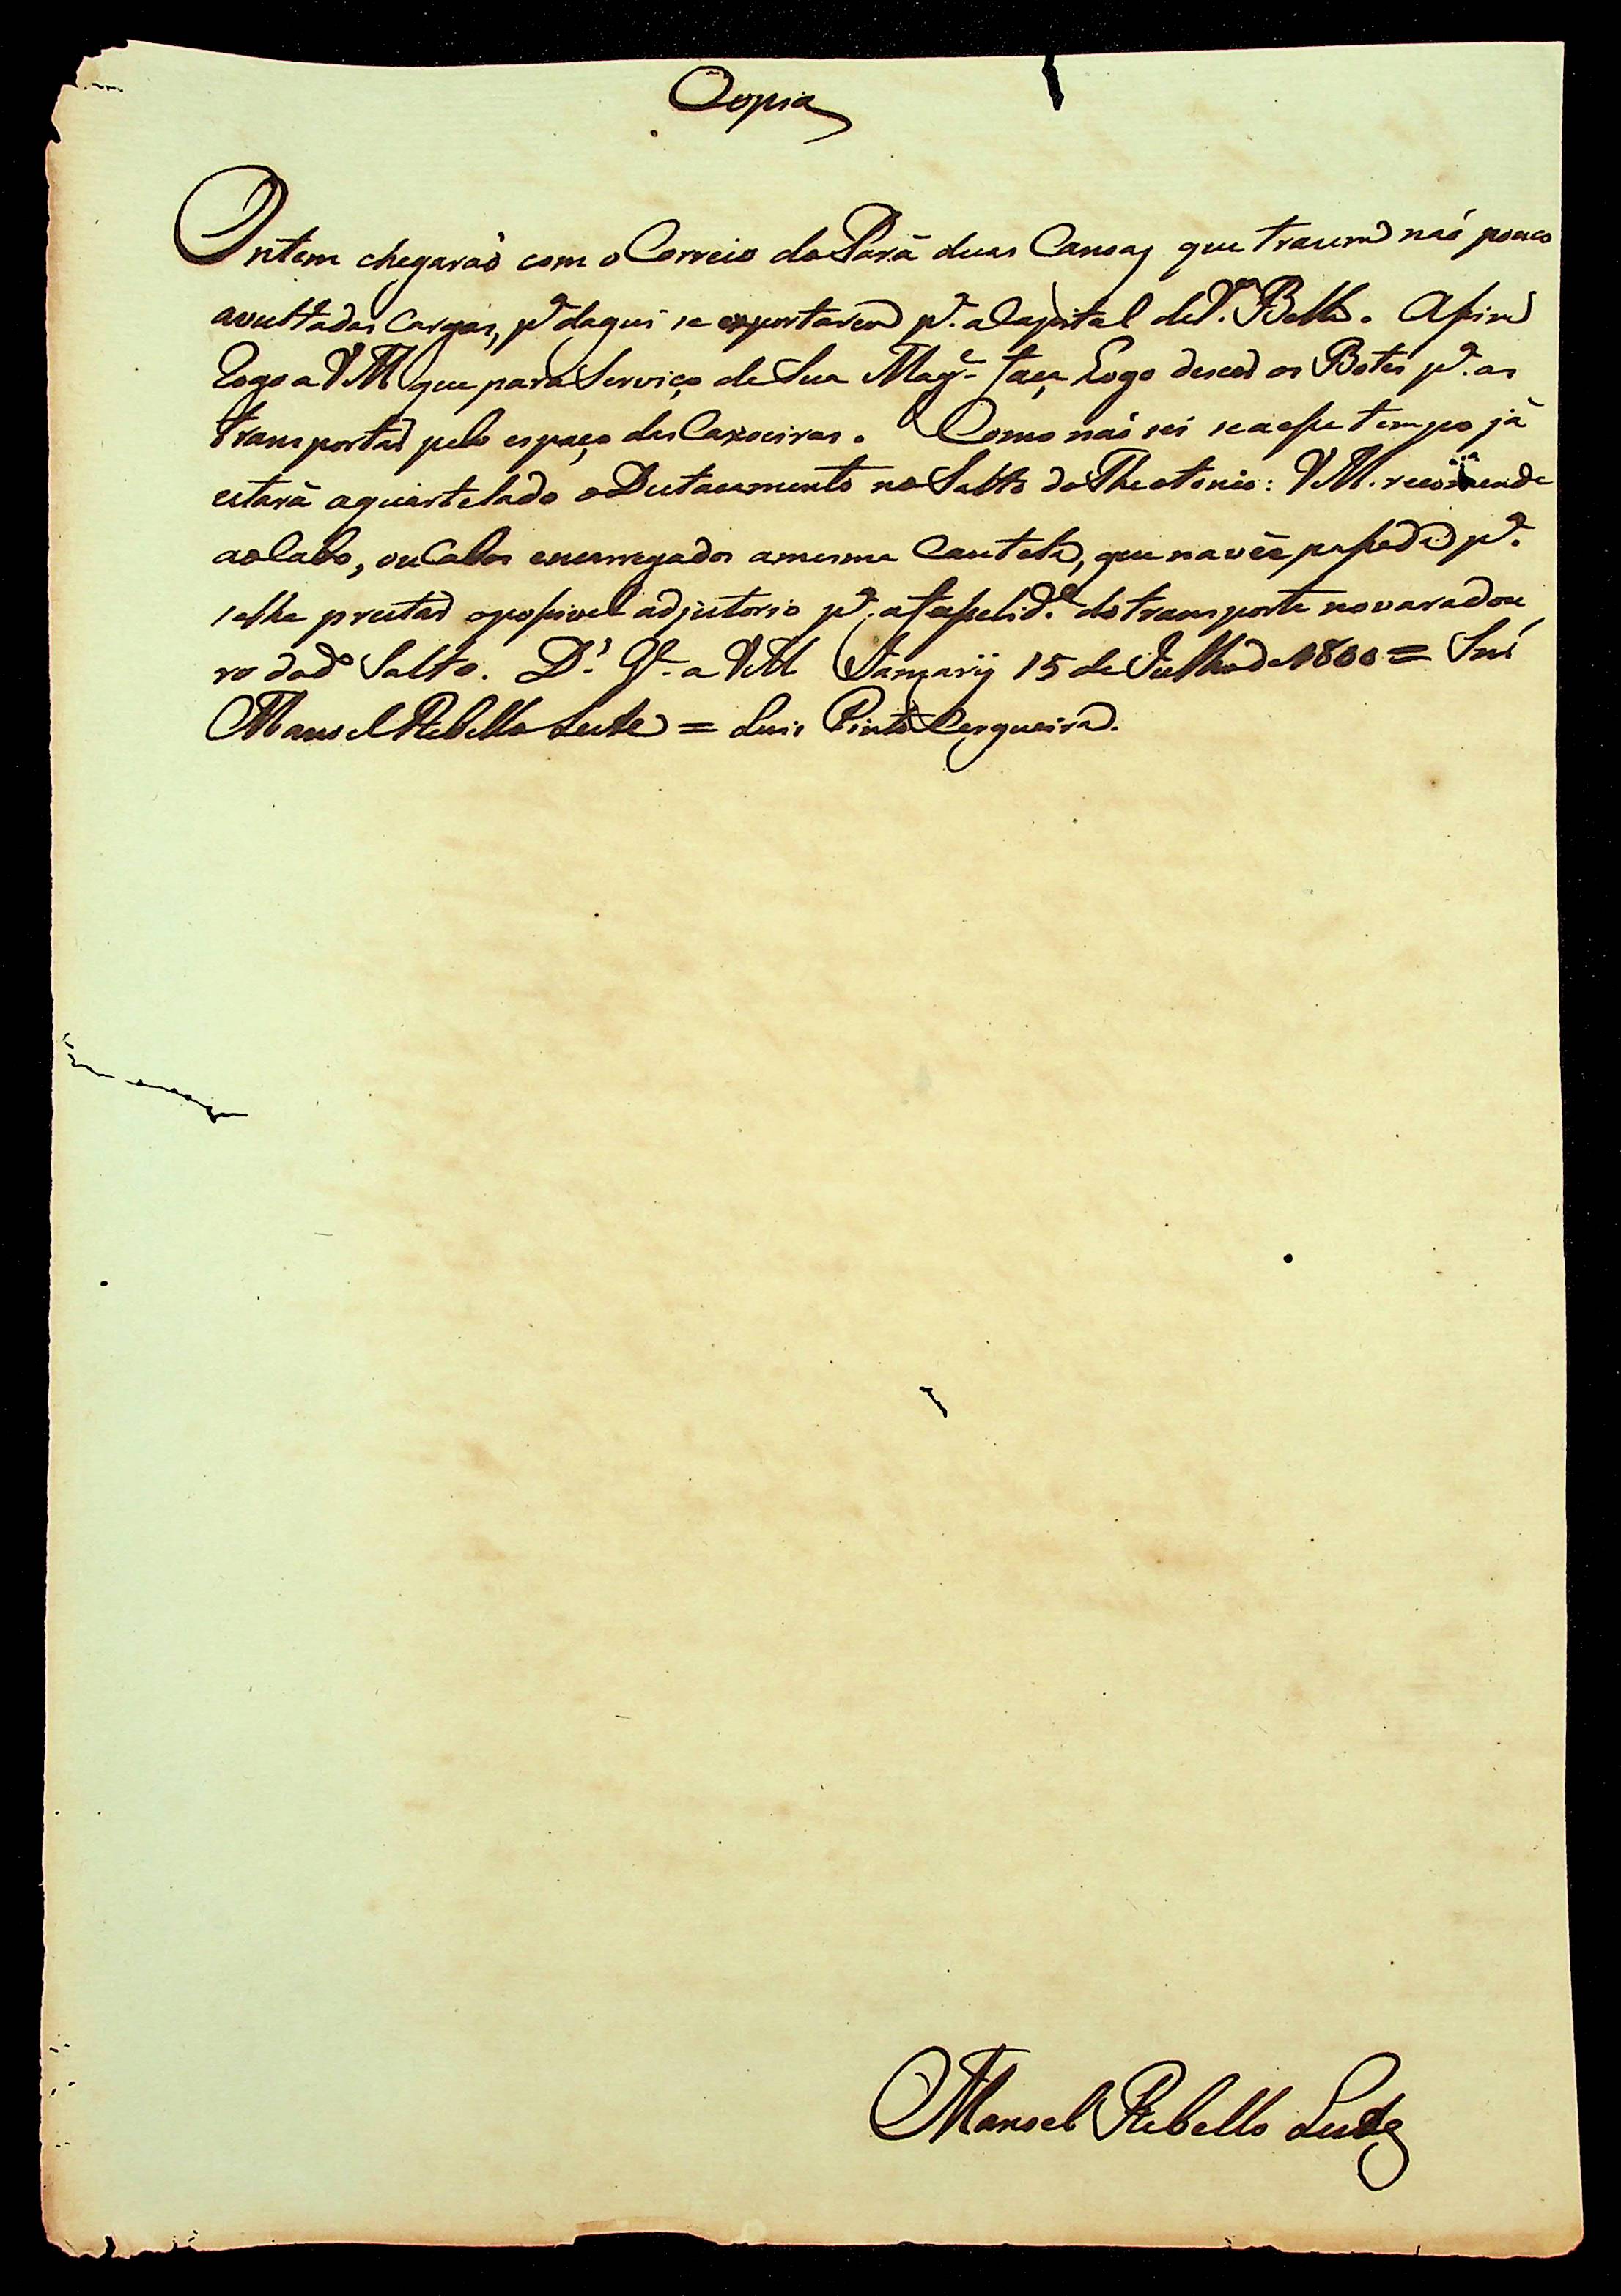 Copia
Ontem chegaraõ com o Correio do Parâ duas Canoas que trazem naõ pouco
avultadas Cargas, pª daqui se exportarem pª. a Capital de Vª. Bella. Assim
Rogo a VM que para Serviço de Sua Magᵉ. faça Logo descer os Botes pª. as
transportar pelo espaço das Caxoeiras. Como naõ sei se a esse tempo jâ
estarâ aquartelado o Destacamento no Salto do Theotonio: VM. recomende
ao Cabo, ou Cabos encarregados a mesma Cautela, que na vez passada pª.
se lhe prestar o possivel adjutorio pª. a facelidᵉ. do transporte no varadou
ro do dº Salto. Dˢ. Gᵉ. a VM 15 de Julho de 1800 = Snr
Manoel Rebello Leite = Luis Pinto Cerqueira.
Manoel Rebello Leite